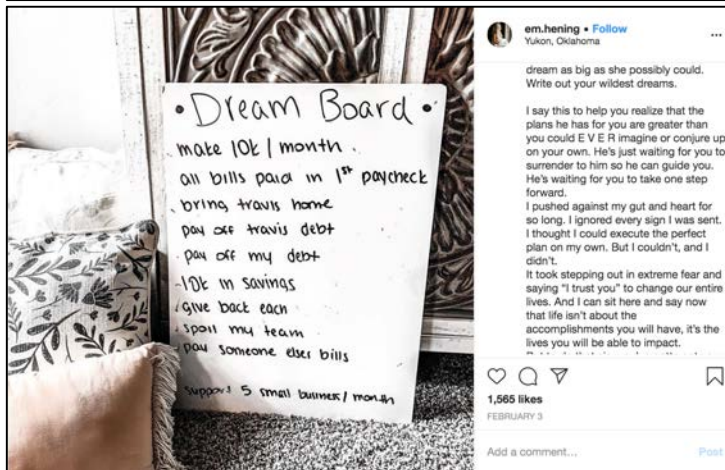 • Dream Board •
make 10k / month
all bills paid in 1st paycheck
bring travis home
pay off travis debt
pay off my debt
10k in savings
give back each
spoil my team
pay someone elses bills
support 5 small business / month
em.hening • Follow
Yukon, Oklahoma
dream as big as she possibly could.
Write out your wildest dreams.
I say this to help you realize that the
plans he has for you are greater than
you could E V E R imagine or conjure up
on your own. He's just waiting for you to
surrender to him so he can guide you.
He's waiting for you to take one step
forward.
I pushed against my gut and heart for
so long. I ignored every sign I was sent.
I thought I could execute the perfect
plan on my own. But I couldn't, and I
didn't.
It took stepping out in extreme fear and
saying “I trust you” to change our entire
lives. And I can sit here and say now
that life isn't about the
accomplishments you will have, it's the
lives you will be able to impact.
1,565 likes
FEBRUARY 3
Add a comment...
Post